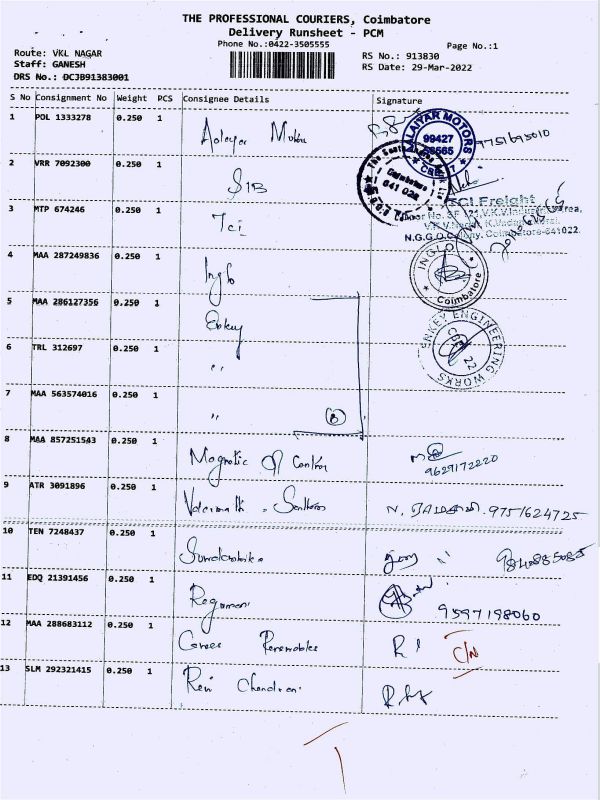 THE PROFESSIONAL COURIERS, Coimbatore
Delivery Runsheet - PCM
Phone No.:0422-3505555
Page No.:1
Route: VKL NAGAR
Staff: GANESH
DRS No.: DCJB91383001
RS No.: 913830
RS Date: 29-Mar-2022
S No Consignment No Weight PCS Consignee Details Signature
1 POL 1333278 0.250 1
ALAIYAR MOTORS
99427
CBE
9751695010
2 VRR 7092300 0.250 1 SIB
Coimbatore
641 028
3 MTP 674246 0.250 1 Tci
TCI Freight
N.G.G.O.Colony, Coimbatore-641022
4 MAA 287249836 0.250 1 Inglo
INGLO
Coimbatore
5 MAA 286127356 0.250 1 Enkey
ENKEY ENGINEERING WORKS
6 TRL 312697 0.250 1 "
7 MAA 563574016 0.250 1 " 3
8 MAA 857251543 0.250 1 Magnetic Control
9629172220
9 ATR 3091896 0.250 1
N. 9751624725
10 TEN 7248437 0.250 1
11 EDQ 21391456 0.250 1
9597198060
12 MAA 288683112 0.250 1 Renewables C/N
13 SLM 292321415 0.250 1 Chandran